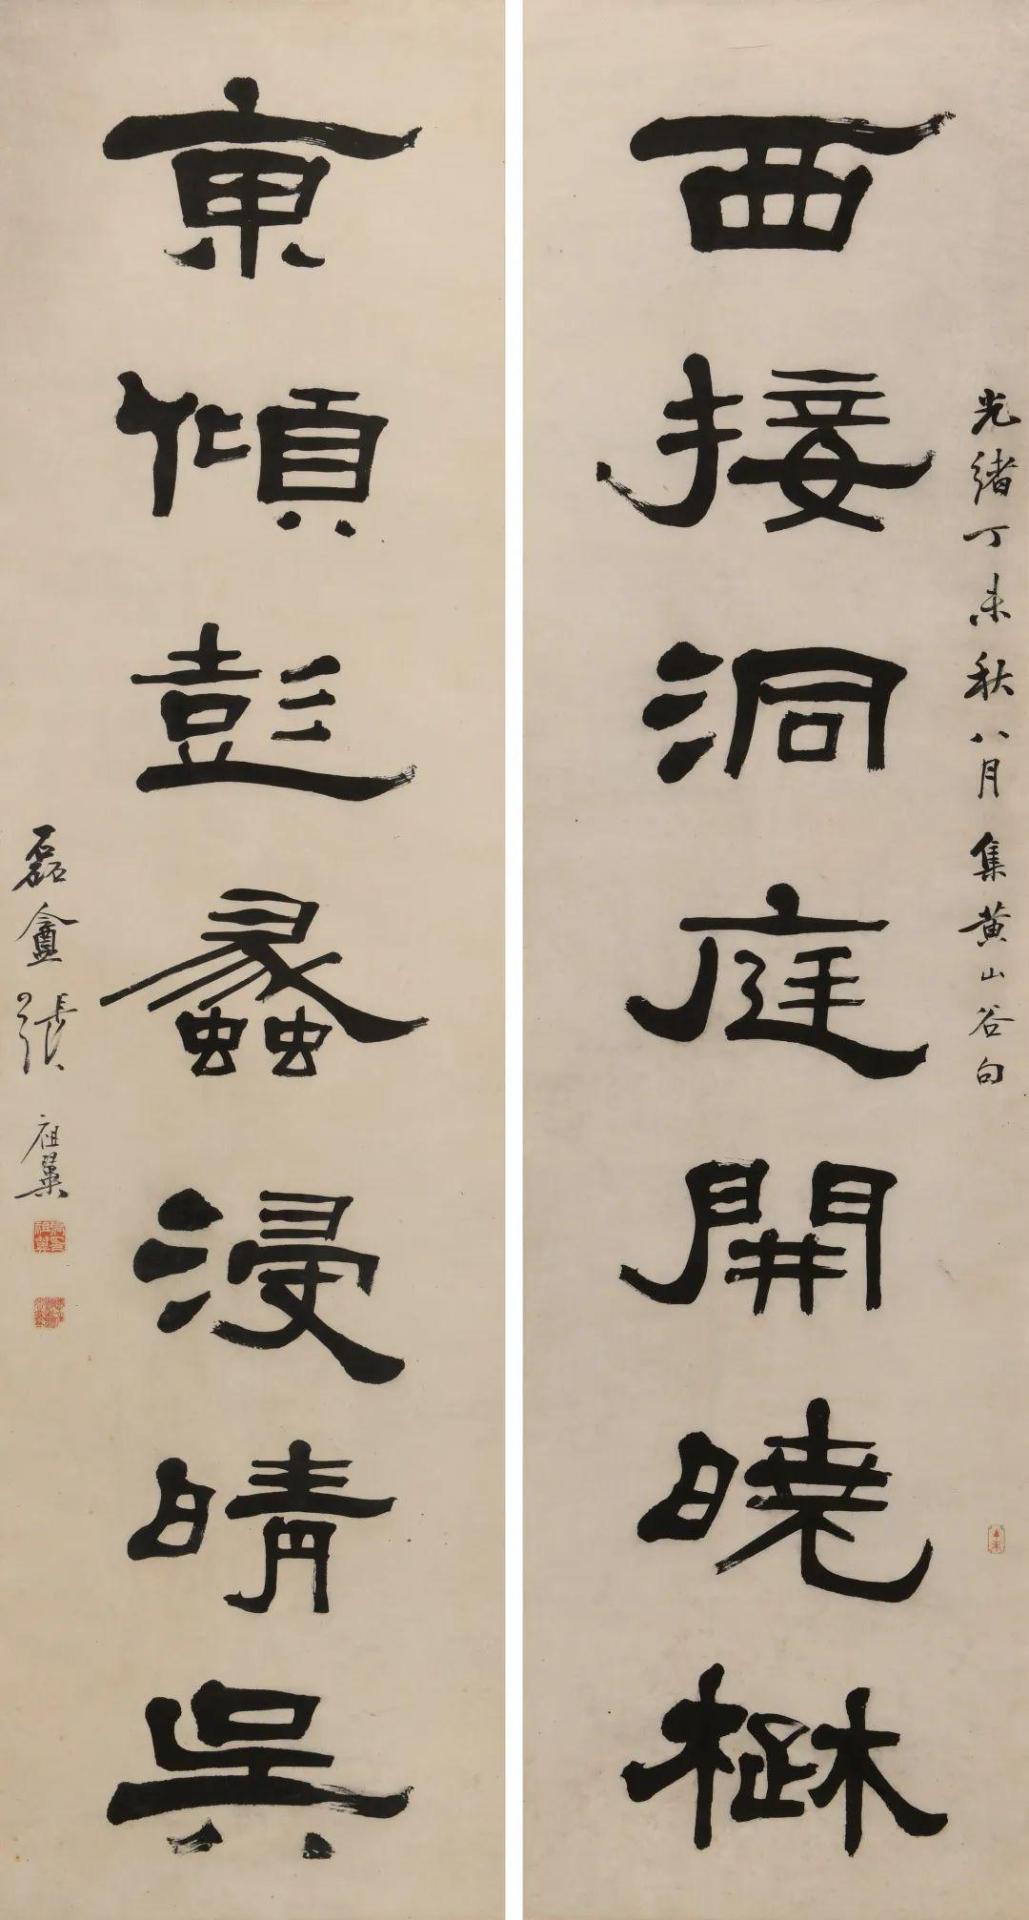 光緒丁未秋八月集黄山谷句
西接洞庭開曉楚
東傾彭蠡浸晴吳
磊盦張祖翼